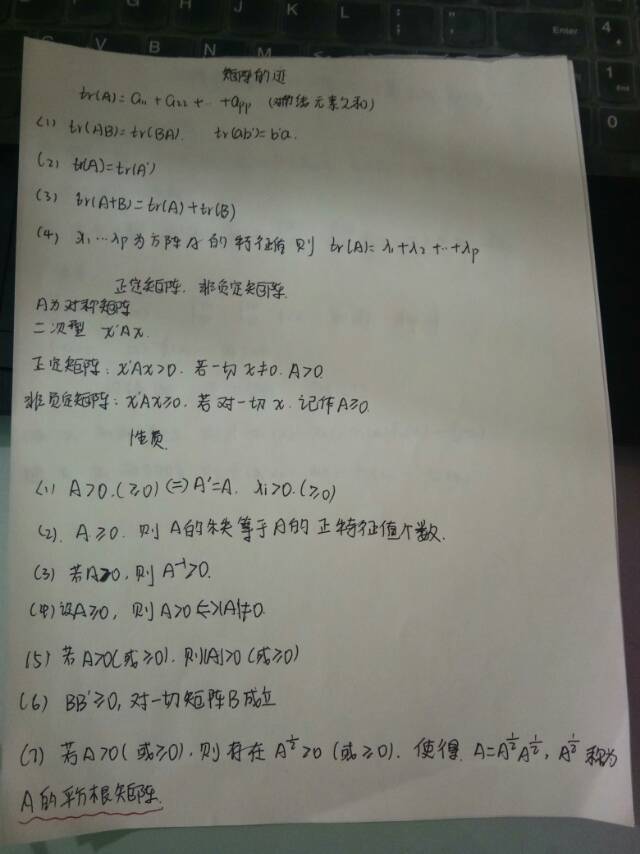 矩阵的迹
tr(A)=a₁₁+a₂₂+…+aₚₚ (对角线元素之和)
(1) tr(AB)=tr(BA). tr(ab')=b'a.
(2) tr(A)=tr(A')
(3) tr(A+B)=tr(A)+tr(B)
(4) λ₁…λp为方阵A的特征值 则 tr(A)=λ₁+λ₂+…+λp
正定矩阵、非负定矩阵.
A为对称矩阵
二次型 x'Ax.
正定矩阵: x'Ax>0. 若一切x≠0. A>0.
非负定矩阵: x'Ax≥0. 若对一切x. 记作A≥0.
性质
(1) A>0.(≥0)<=>A'=A. λi>0.(≥0)
(2). A≥0. 则A的秩等于A的正特征值个数.
(3) 若A>0, 则A⁻¹>0.
(4) 设A≥0, 则A>0<=>|A|≠0.
(5) 若A>0(或≥0). 则|A|>0(或≥0)
(6) BB'≥0, 对一切矩阵B成立
(7) 若A>0(或≥0), 则存在A^{1/2}>0(或≥0). 使得 A=A^{1/2}A^{1/2}, A^{1/2}称为
A的平方根矩阵.
Enter